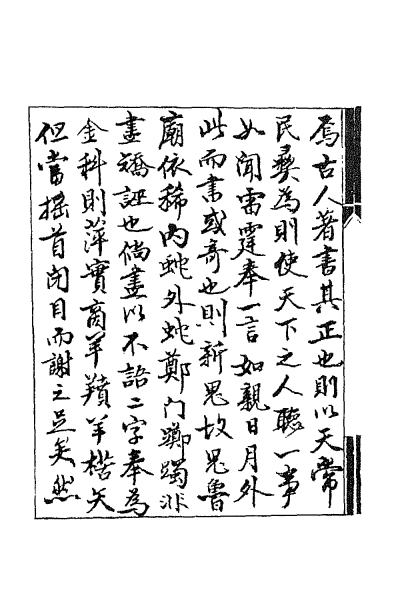 焉古人著書其正也則以天常
民彝為則使天下之人聽一事
如聞雷霆奉一言如親日月外
此而書或奇也則新鬼故鬼魯
廟依稀內蛇外蛇鄭門躑躅非
盡矯誣也倘盡以不語二字奉為
金科則萍實商羊羵羊楛矢
但當搖首閉目而謝之足矣然